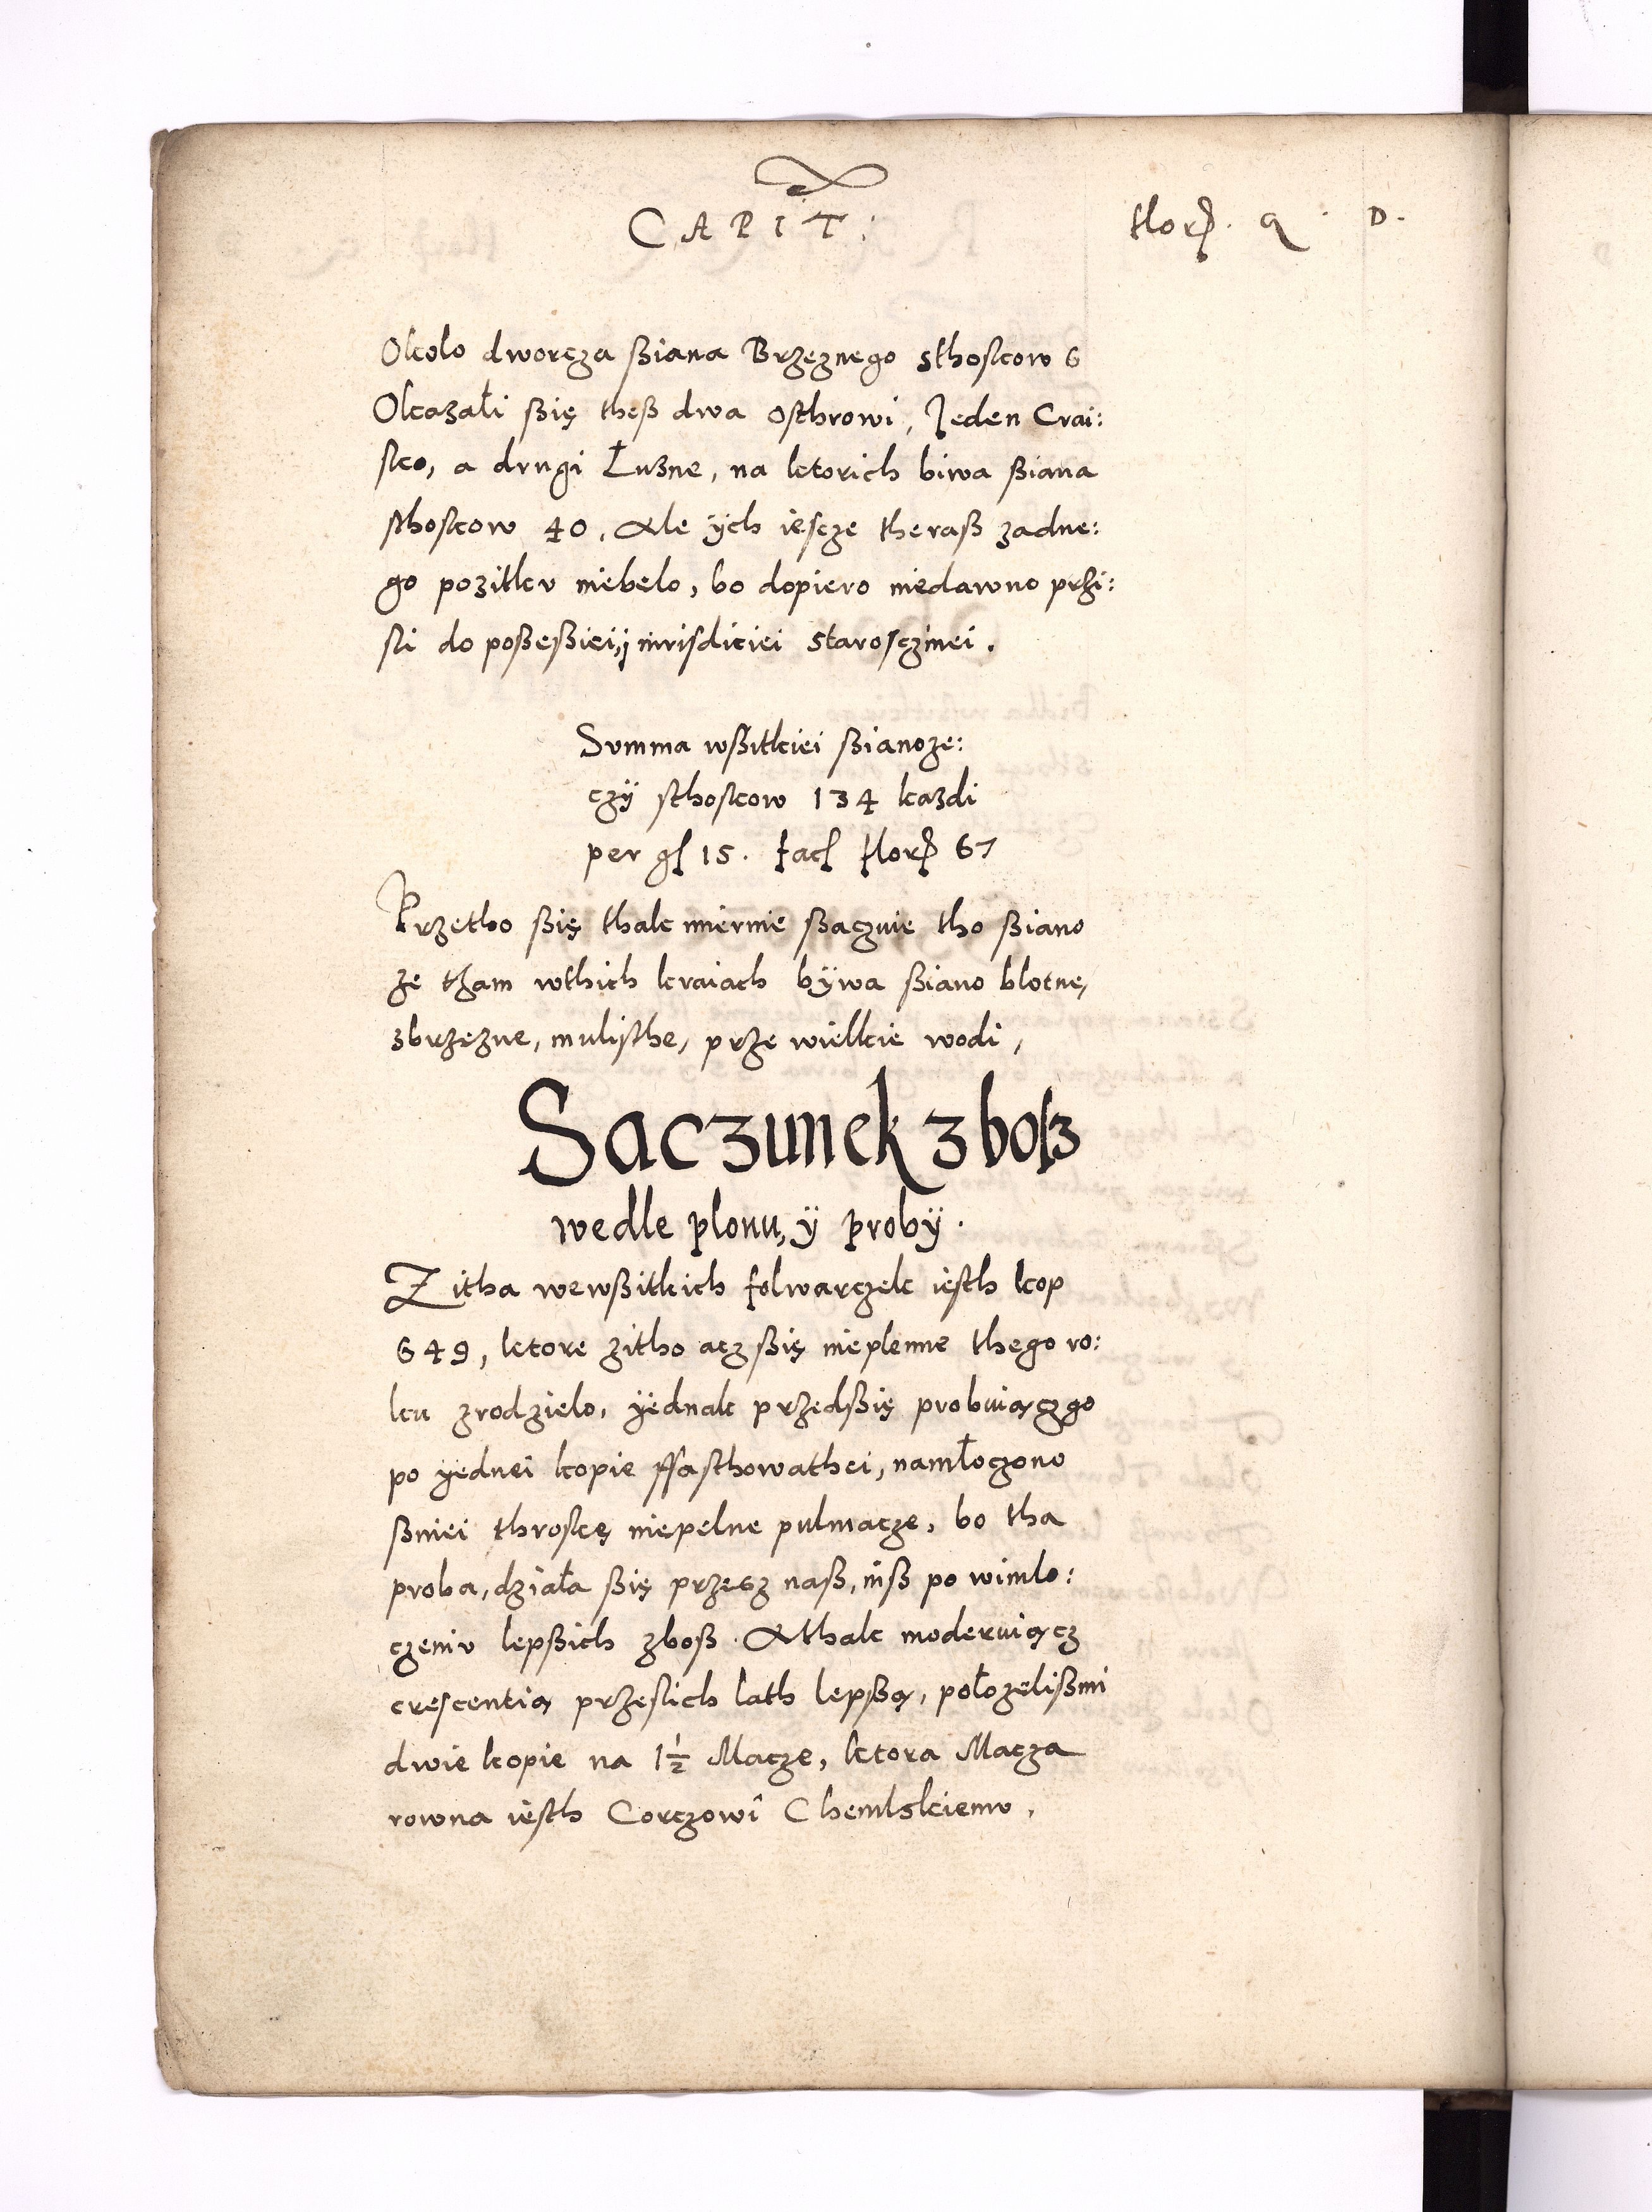 CAPIT: floren. q. D.
Okolo dworcza ßiana Brzeznego sthoskow 6
Okazali ßię theß dwa osthrowi, Jeden Crai:
sko, a drugi Łuzne, na ktorich biwa ßiana
sthoskow 40, Ale ÿch iescze theraß zadne:
go pozitkv niebelo, bo dopiero niedawno przi:
sli do poßeßiei, j iurisdiciei starosczinei.
Svmma wßitkiei ßianoze:
czÿ sthoskow 134 kazdi
per gſ 15. facſ florẜ 67
Przetho ßię thak miernie ßaczuie tho ßiano
ze tham wthich kraiach bÿwa ßiano blotne,
zbrzezne, mulisthe, prze wielkie wodi,
Saczunek zbosz
wedle plonu, ÿ probÿ.
Zitha wewßitkich folwarczek iesth kop
649, ktore zitho acz ßię nieplenne thego ro:
ku zrodzielo, ÿednak przedßię probuiącz go
po ÿednei kopie ffasthowathei, namłoczono
ßniei throskę niepelne pulmacze, bo tha
proba, działa ßię przesz naß, niß po wimlo:
czeniv lepßich zboß. Athak moderuiącz
crescentią przeslich lath lepßą, położelißmi
dwie kopie na 1½ Macze, ktora Macza
rowna iesth Corczowi Chemlskiemv,